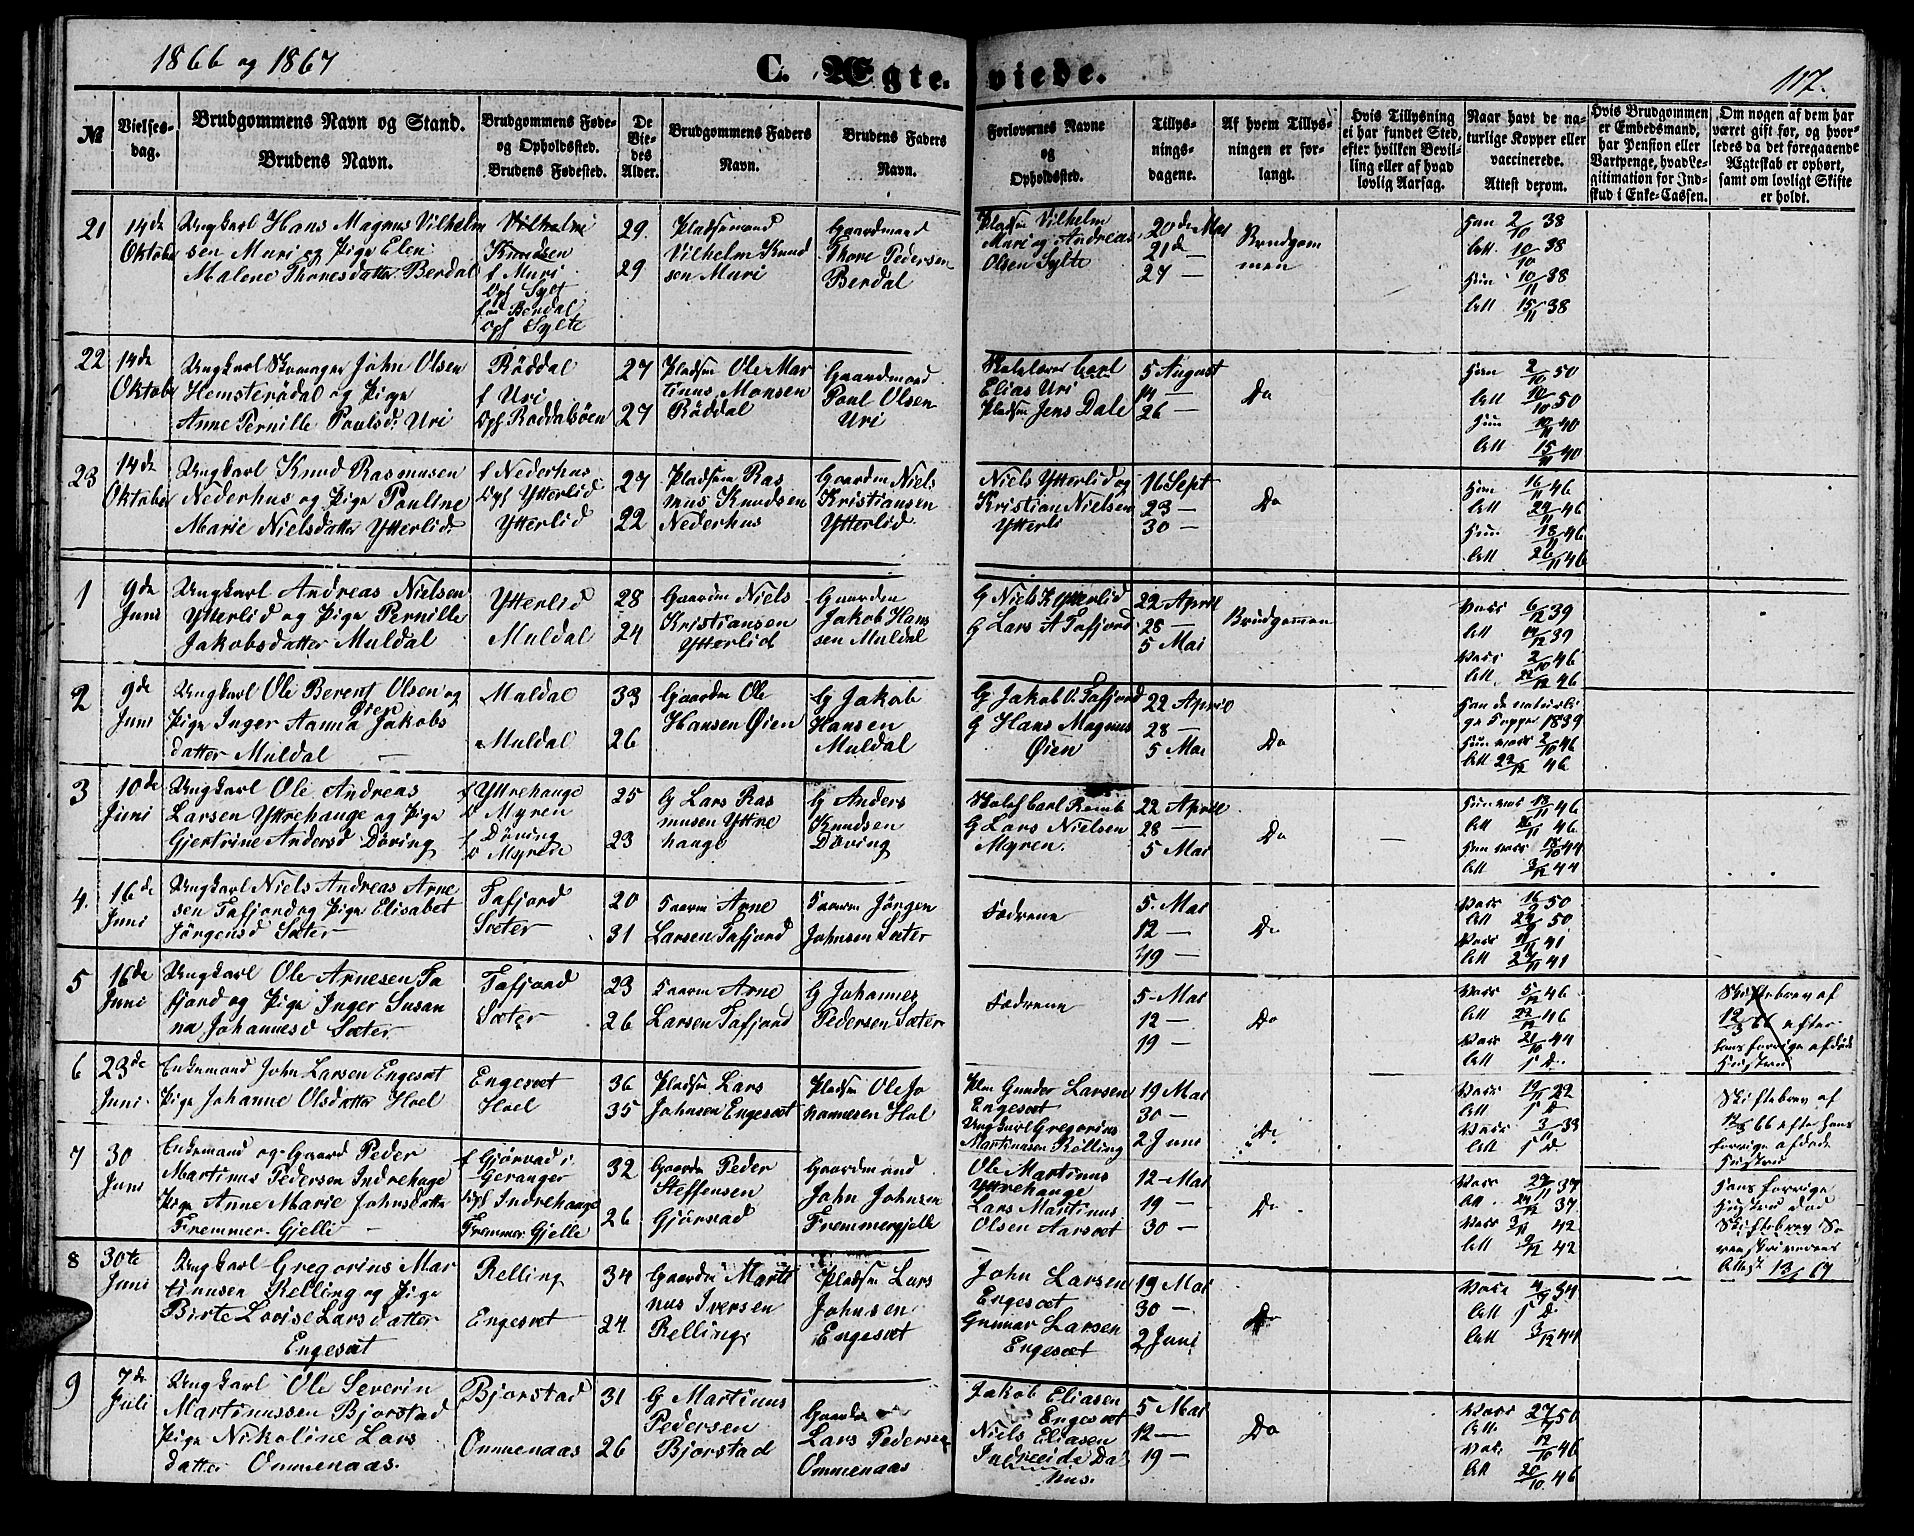 1866 og 1867
C. Ægteviede.
117.
№
Vielses-dag.
Brudgommens Navn og Stand.
Brudens Navn.
Brudgommens Føde- og Opholdssted.
Brudens Fødested.
De Viedes Alder.
Brudgommens Faders Navn.
Brudens Faders Navn.
Forlovernes Navne og Opholdssted.
Tillysningsdagene.
Af hvem Tillysningen er forlangt.
Hvis Tillysning ei har fundet Sted, efter hvilken Bevilling eller af hvad lovlig Aarsag.
Naar havt de naturlige Kopper eller vaccinerede.
Attest derom.
Hvis Brudgommen er Embedsmand, har Pension eller Vartpenge, hvad Legitimation for Indskud i Enke-Cassen.
Om nogen af dem har været gift før, og hvorledes da det foregaaende Ægteskab er ophørt, samt om lovligt Skifte er holdt.
21 14de Oktober
Ungkarl Hans Magnus Vilhelm
sen Muri og Pige Elen
Malene Thoresdatter Berdal
Vilhelm
Knudsen
f Muri
Opf Sylt
f Berdal
opf Sylte
29.
29
Pladsemand
Vilhelm Knud
sen Muri
Gaardmand
Thore Pedersen
Berdal
Pladsm Vilhelm
Muri og Andreas
Olsen Sylte
20de Mai
21de
27 —
Brudgom
men
Han 2/10 38
Att. 10/10 38
Hun 10/11 38
Att 15/11 38
22 14de Oktober
Ungkarl Skomager John Olsen
Hemsterødal og Pige
Anne Pernille Poulsd: Uri
Røddal
f Uri
Opf Roddalsøen
27
27
Pladsm Ole Mar
tinus Monsen
Røddal
Gaardmand
Poul Olsen
Uri
Elias Uri
Pladsm Jens Dale
5 August
14 —
26 —
Do
Han 2/10 50
Att 10/10 50
Hun 10/11 40
Att 15/11 40
23 14de Oktober
Ungkarl Knud Rasmusen
Nederhus og Pige Pauline
Marie Nielsdatter Ytterlid
f Nederhus
Opf Ytterlid
Ytterlid
27
22
Pladsm Ras
mus Knudsen
Nederhus
Gaardm Niels
Kristiansen
Ytterlid
Niels Ytterlid og
Kristian Nielsen
Ytterli
16 Sept
23 —
30 —
Do
Han 16/11 46
Att 22/11 46
Hun 18/11 46
Att 26/11 46
1 9de Juni
Ungkarl Andreas Nielsen
Ytterlid og Pige Pernille
Jakobsdatter Muldal
Ytterlid
Muldal
28
24
Gaardm Niels
Kristiansen
Ytterlid
Gaardm
Jakob Han
sen Muldal
G Niels K Ytterlid
G Lars A Tafjord
22 April
28 —
5 Mai
Brudgommen
Vacc 6/12 39
Att 14/12 39
Vacc 2/10 46
Att 22/12 46
2 9de Juni
Ungkarl Ole Berent Olsen og
Øien
Pige Inger Aanna Jakobs
datter Muldal —
Muldal
Muldal
33
26
Gaardm Ole
Hansen Øien
G Jakob
Hansen
Muldal
G Jakob O. Tafjord
G Hans Magnus
Øien
22 April
28 —
5 Mai
Do
Han de naturli
ge Kopper 1839
Hun vacc 2/10 46
Att 22/12 46
3 10de Juni
Ungkarl Ole Andreas
Larsen Yttrehange og Pige
Gjertrine Andersd Döving
f Yttrehange
O Myren
f Döving
O Myrene
25
23
G Lars Ras
musen Yttre
hange
G Anders
Knudsen
Döving
G Lars Nielsen
Myren.
22 April
28 —
5 Mai
Do
4. 16de Juni
Ungkarl Niels Andreas Arne
sen Tafjord og Pige Elisabet
Jörgensd Sæter
Tafjord
Sæter
20
31
Gaardm Arne
Larsen Tafjord
Gaardm Jörgen
Johnsen Sæter
Fædrene
5. Mai
12 —
19 —
Do
Vacc 16/9 50
Att 22/9 50
Vacc 11/11 41
Att 27/11 41
5 16de Juni
Ungkarl Ole Arnesen Ta
fjord og Pige Inger Susan
na Johannesd Sæter
Tafjord
Sæter
23
26
Gaardm Arne
Larsen Tafjord
G Johannes
Pedersen Sæter
Fædrene
5 Mai
12 —
19 —
Do
Vacc 5/12 46
Att 22/12 46
Vacc 21/10 44
Att 5 D.
Skiftebrev af
12/3 66 efter
hans forrige afdøde
Hustru
6 23de Juni
Enkemand John Larsen Engeset
Pige Johanne Olsdatter Hoel
Engeset
Hoel
36
35
Pladsm Lars
Johnsen Engeset
Pladsm Ole Jo
hannesen Hol
Plm Gunder Larsen
Engeset
Ungkarl Gregorius
Martinusen Relling
19 Mai
30 —
2 Juni
Do
Skiftebrev af
12/3 66 efter hans
forrige afdøde
Hustru
7 30 Juni
Enkemand og Gaard Peder
Martinus Pedersen Indrehage
Pige Anne Marie Johnsdatter
Fremmer Gjelle —
f Gjørvad i
Geranger
Opf Indrehange
Fremmer Gjelle
32
26
Gaardm Peder
Steffensen
Gjørvad
Gaardmand
John Johnsen
Fremmergjelle
Ole Martinus
Yttrehange
Lars Martinus
Olsen Aarset
12 Mai
19 —
30 —
Do
Hans forrige
Hustru død
Skiftebrev So
renskriverens
Attest 13/5 67
8 30te Juni
Ungkarl Gregorius Mar
tinusen Relling og Pige
Birte Lovise Larsdatter
Engeset
Relling
Engeset
34
24.
Gaardm Marti
nus Iversen
Relling
Pladsm Lars
Johnsen
Engeset
John Larsen
Engeset
Gunnar Larsen
Engeset
19 Mai
30 —
2 Juni
Do
Vacc 4/9 34
Att 5 D
Att 3/12 44
9 7de Juli
Ungkarl Ole Severin
Martinussen Bjorstad
Pige Nikoline Lars
datter Ommenaas
Bjorstad
Ommenaas
31
26
G Martinus
Pedersen
Bjorstad
Gaardm
Lars Pedersen
Ommenaas
Jakob Eliasen
Engeset
Niels Eliasen
Indreeide Da
hus.
5 Mai
12 —
19 —
Do
Vacc 27/7 50
Att.
Vac. 12/10 46
Att 20/10 46